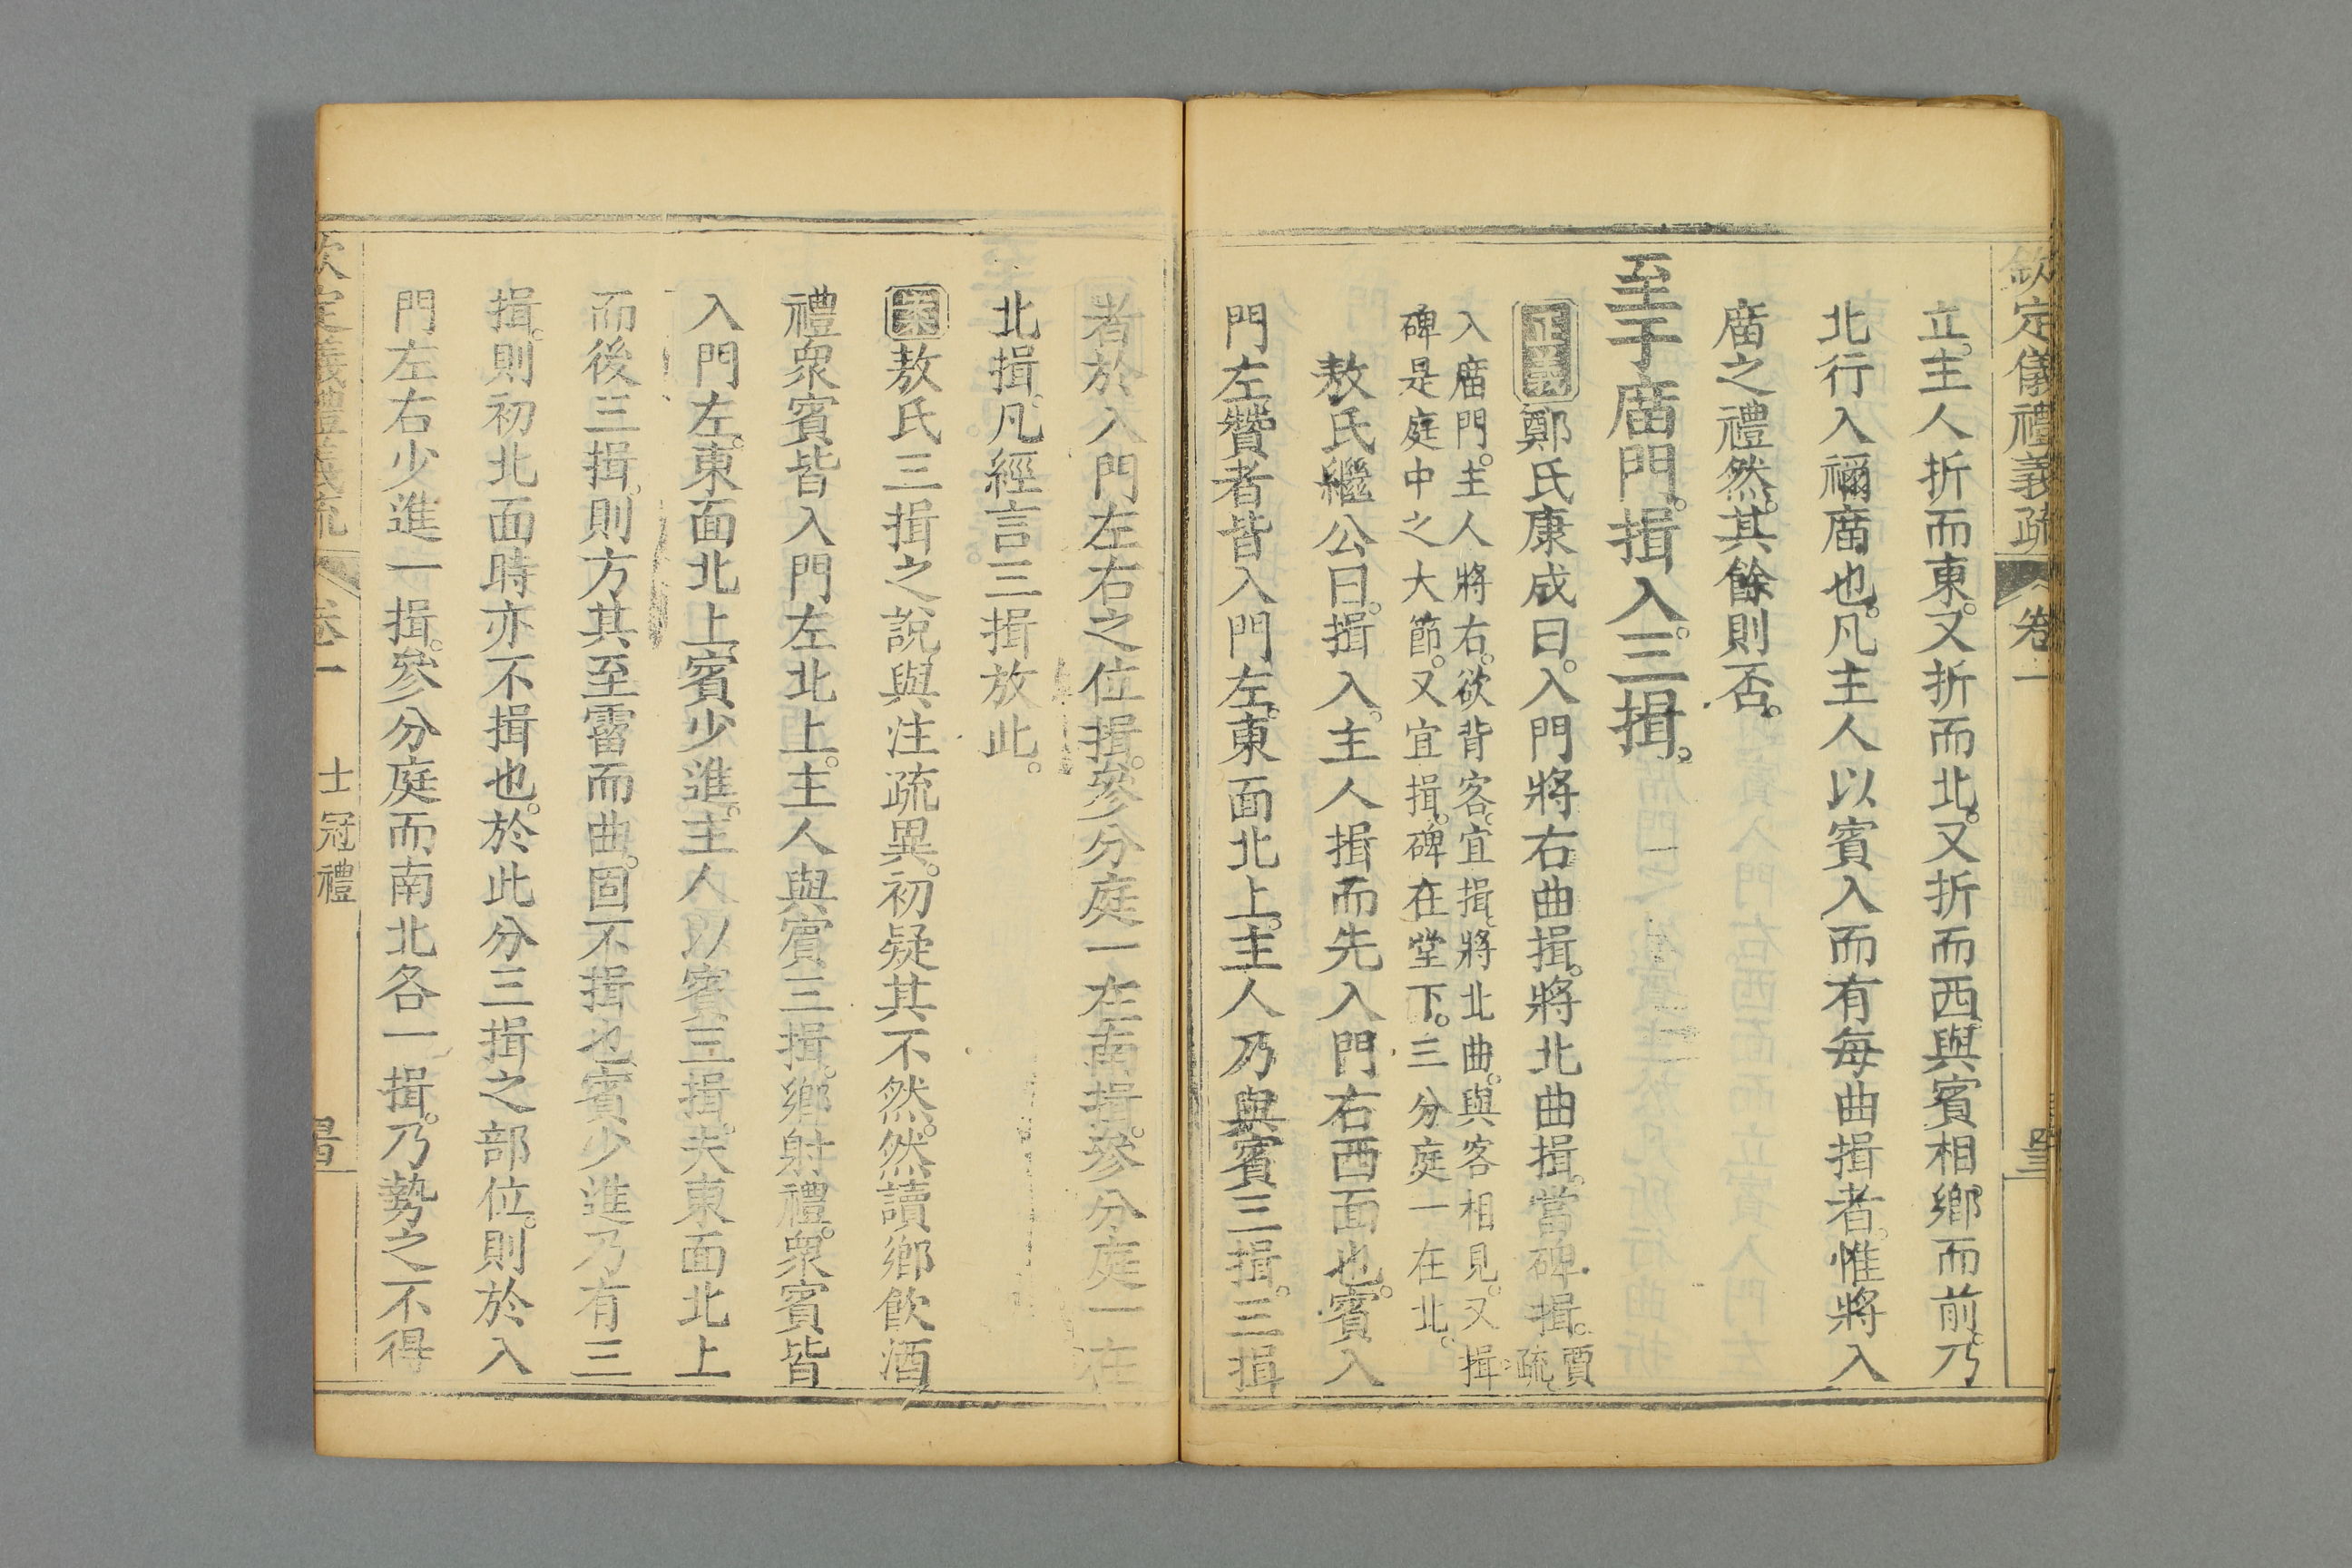 欽定儀禮義疏 卷一
立。主人折而東。又折而北。又折而西與賓相鄉而前。乃
北行入禰庿也。凡主人以賓入而有每曲揖者。惟將入
庿之禮然。其餘則否。
至于庿門。揖入。三揖。
正義鄭氏康成曰。入門將右曲揖。將北曲揖。當碑揖。賈疏。
入庿門。主人將右。欲背客。宜揖。將北曲。與客相見。又揖。
碑是庭中之大節。又宜揖。碑在堂下。三分庭一在北。
敖氏繼公曰。揖入。主人揖而先入門右西面也。賓入
門左。贊者皆入門左。東面北上。主人乃與賓三揖。三揖
者於入門左右之位揖。參分庭一在南揖。參分庭一在
北揖。凡經言三揖放此。
案敖氏三揖之說。與注疏異。初疑其不然。然讀鄉飲酒
禮衆賓皆入門左北上。主人與賓三揖。鄉射禮。衆賓皆
入門左。東面北上。賓少進。主人以賓三揖。夫東面北上
而後三揖。則方其至霤而曲。固不揖也。賓少進乃有三
揖。則初北面時亦不揖也。於此分三揖之部位。則於入
門左右少進一揖。參分庭而南北各一揖。乃勢之不得
欽定儀禮義疏 卷一 士冠禮